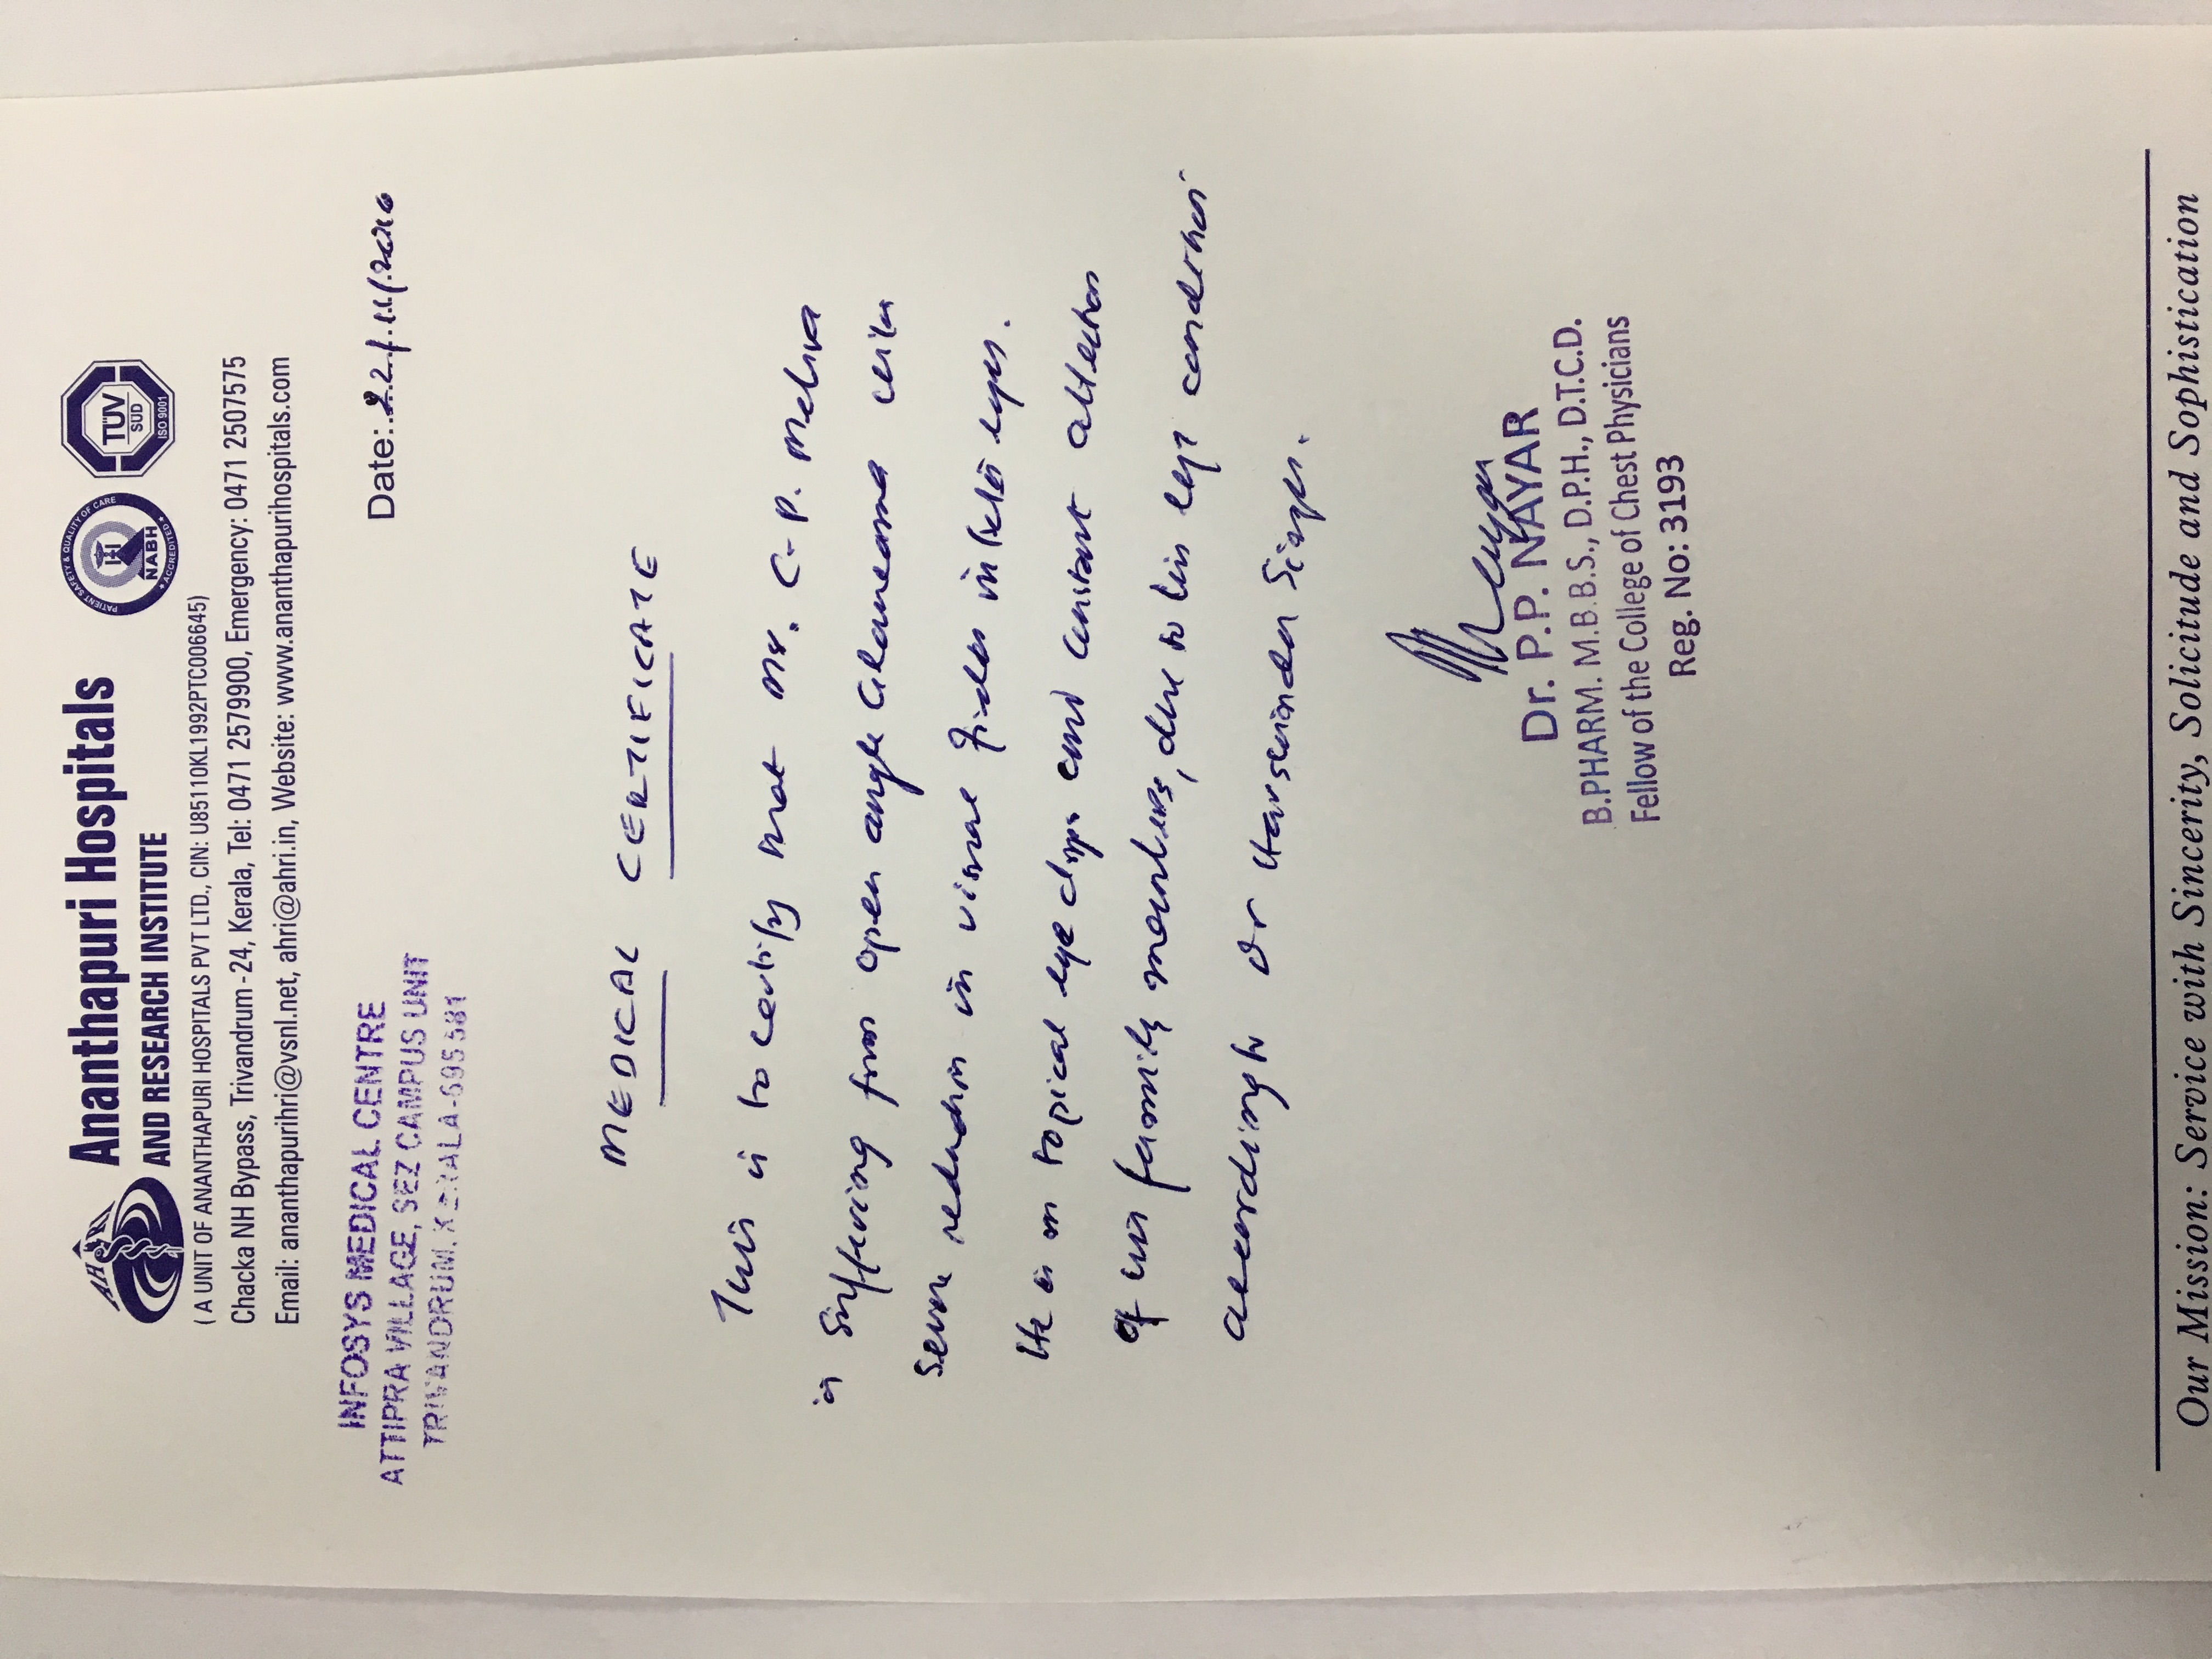 AHRI
Ananthapuri Hospitals
AND RESEARCH INSTITUTE
PATIENT SAFETY & QUALITY OF CARE
NABH
ACCREDITED
TÜV
SÜD
ISO 9001
( A UNIT OF ANANTHAPURI HOSPITALS PVT LTD., CIN: U85110KL1992PTC006645)
Chacka NH Bypass, Trivandrum-24, Kerala, Tel: 0471 2579900, Emergency: 0471 2507575
Email: ananthapurihri@vsnl.net, ahri@ahri.in, Website: www.ananthapurihospitals.com
INFOSYS MEDICAL CENTRE
ATTIPRA VILLAGE, SEZ CAMPUS UNIT
TRIVANDRUM, KERALA-695581
Date: 22/11/
MEDICAL CERTIFICATE
This is to certify that Mr. C.P. Mehra
is suffering from open angle Glaucoma with
severe reduction in visual fields in both eyes.
He is on topical eye drops and constant attention
of his family members, due to his eye condition
according to Dr Harswinder Singh.
Dr. P.P. NAYAR
B.PHARM. M.B.B.S., D.P.H., D.T.C.D.
Fellow of the College of Chest Physicians
Reg. No: 3193
Our Mission: Service with Sincerity, Solicitude and Sophistication